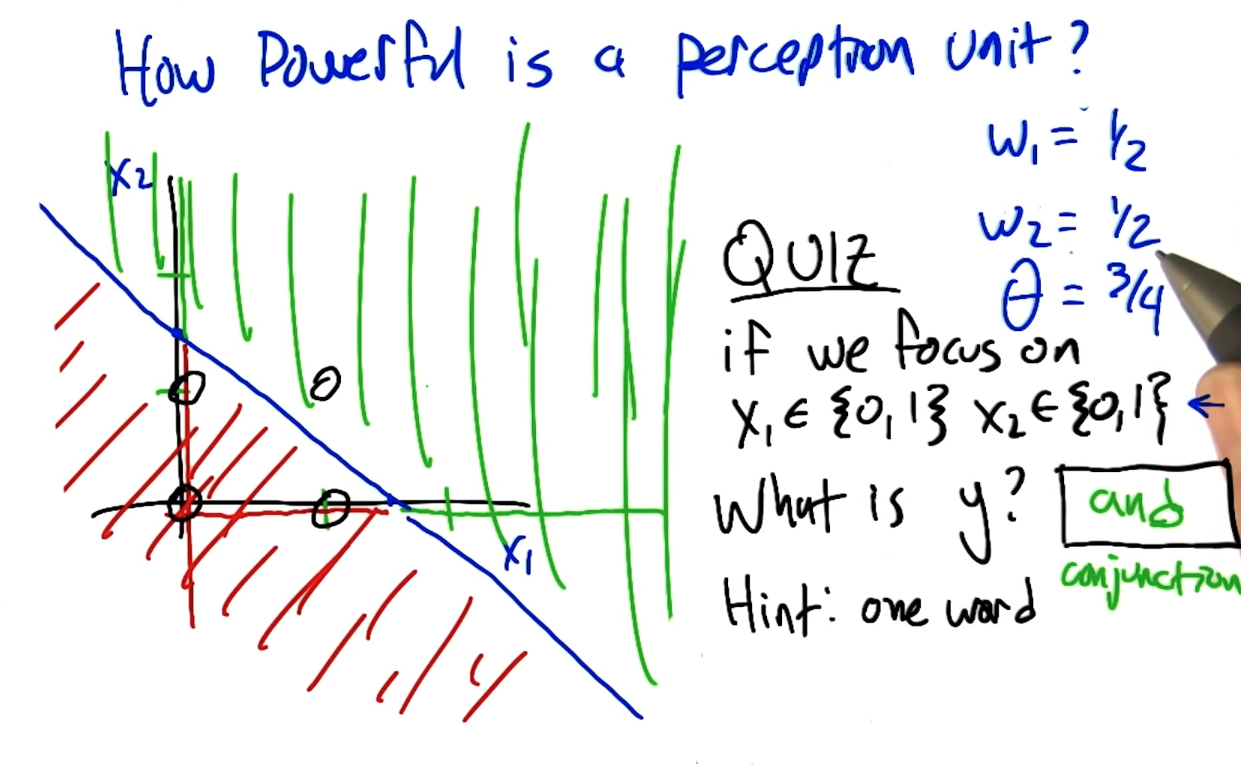 How Powerful is a perceptron unit?
w₁ = ½
w₂ = ½
θ = 3/4
X₂
X₁
QUIZ
if we focus on
X₁ ∈ {0,1} X₂ ∈ {0,1} ←
What is y? and
conjunction
Hint: one word